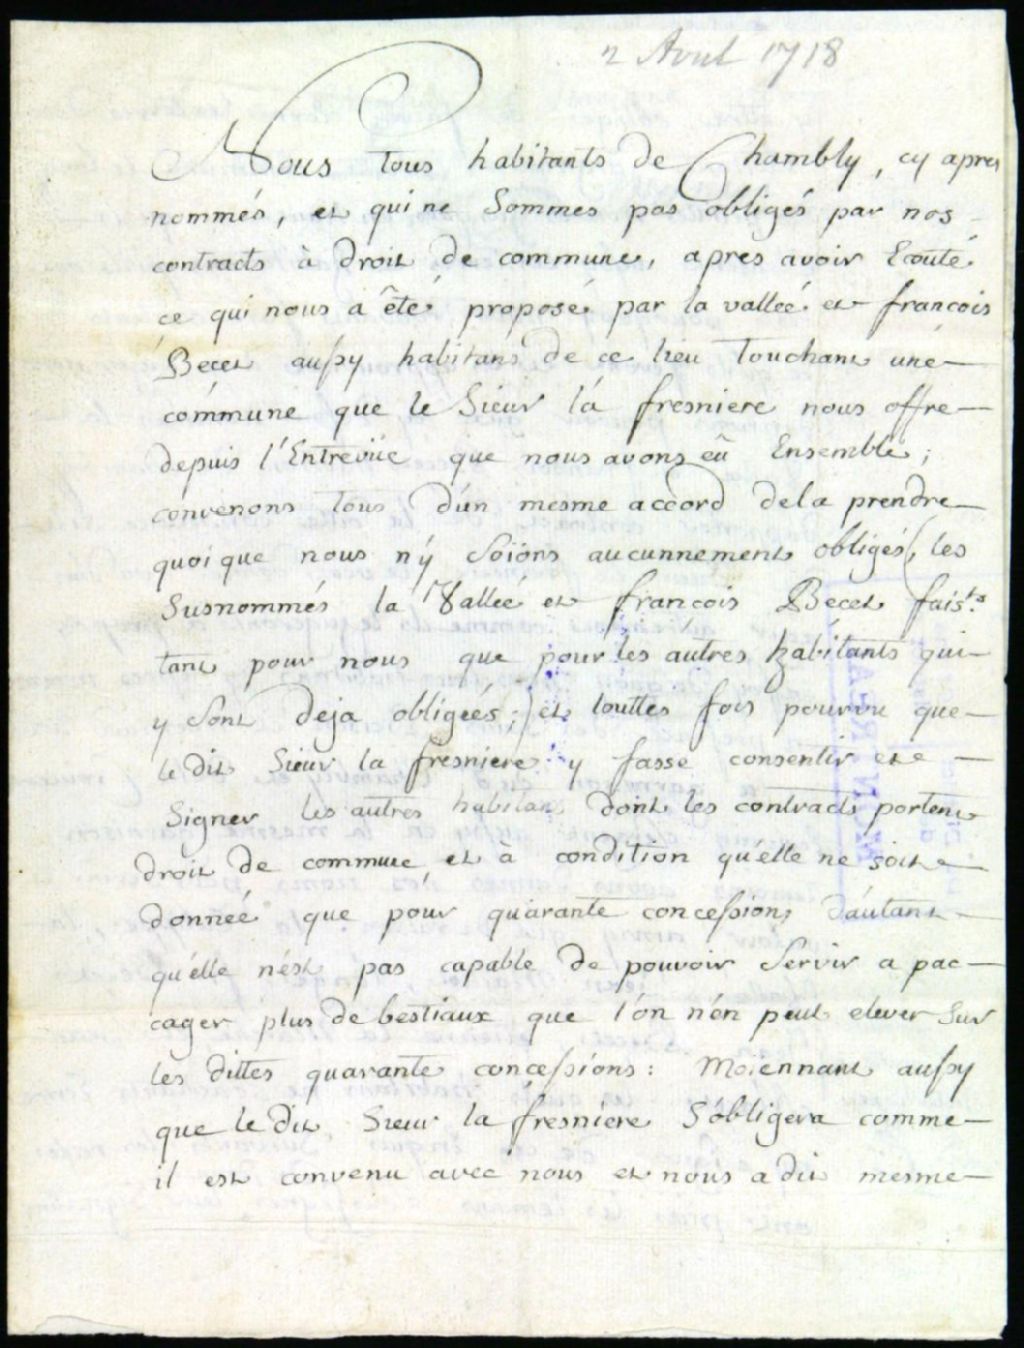 2 Avril 1718
Nous tous habitants de Chambly, cy apres
nommés, et qui ne Sommes pas obligés par nos
contracts à droit de commune, apres avoir Ecouté
ce qui nous a êté proposé par la valleé et francois
Becet aussy habitans de ce lieu Touchant une
commune que le Sieur la fresniere nous offre
depuis l'Entreviie que nous avons eû Ensemble;
convenons tous d'un mesme accord de la prendre
quoi que nous n'y soions aucunnement obligés (les
Susnommés la Valleé et francois Becet faists.
tant pour nous que pour les autres habitants qui
y sont deja obligeés;) et touttes fois pourvu que
le dit Sieur la fresniere y fasse consentir et
Signer les autres habitans dont les contracts portent
droit de commune et à condition qu'elle ne soit
donneé que pour quarante concessions d'autant
qu'elle n'est pas capable de pouvoir servir a pac-
cager plus de bestiaux que l'on n'en peut elever sur
les dittes quarante concessions: Moiennant aussy
que le dit Sieur la fresniere S'obligera comme
il est convenu avec nous et nous a dit mesme